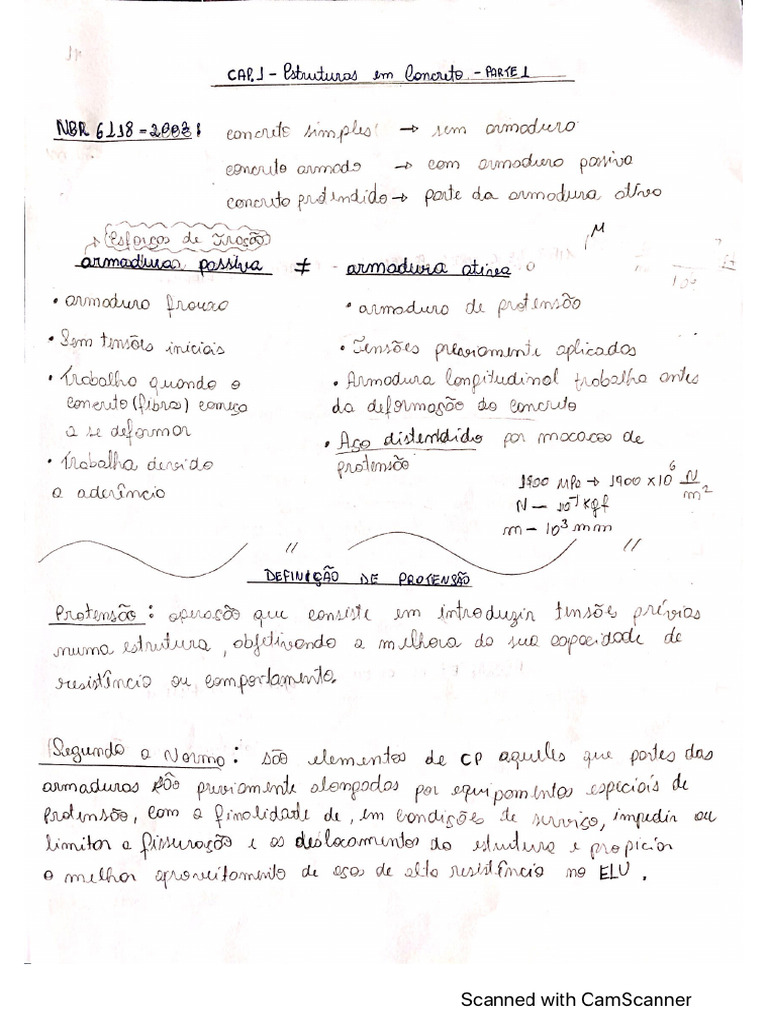 CAP.1 - Estruturas em Concreto - PARTE 1
NBR 6118-2003: concreto simples: → sem armadura
concreto armado → com armadura passiva
concreto protendido → parte da armadura ativa
Esforços de Tração
M
armaduras passiva ≠ armadura ativa
• armadura frouxa
• Sem tensões iniciais
• Trabalha quando o
concreto (fibra) começa
a se deformar
• Trabalha devido
a aderência
• armadura de protensão
• Tensões previamente aplicadas
• Armadura longitudinal trabalha antes
da deformação do concreto
• Aço distendido por macacos de
protensão
1900 MPa → 1900 x 10⁶ N/m²
N – 10⁻¹ kgf
m – 10³ mm
DEFINIÇÃO DE PROTENSÃO
Protensão: operação que consiste em introduzir tensões prévias
numa estrutura, objetivando a melhora da sua capacidade de
resistência ou comportamento.
Segundo a Norma: são elementos de CP aquelles que partes das
armaduras são previamente alongadas por equipamentos especiais de
protensão, com a finalidade de, em condições de serviço, impedir ou
limitar a fissuração e os deslocamentos da estrutura e propiciar
o melhor aproveitamento de aços de alta resistência no ELU.
Scanned with CamScanner